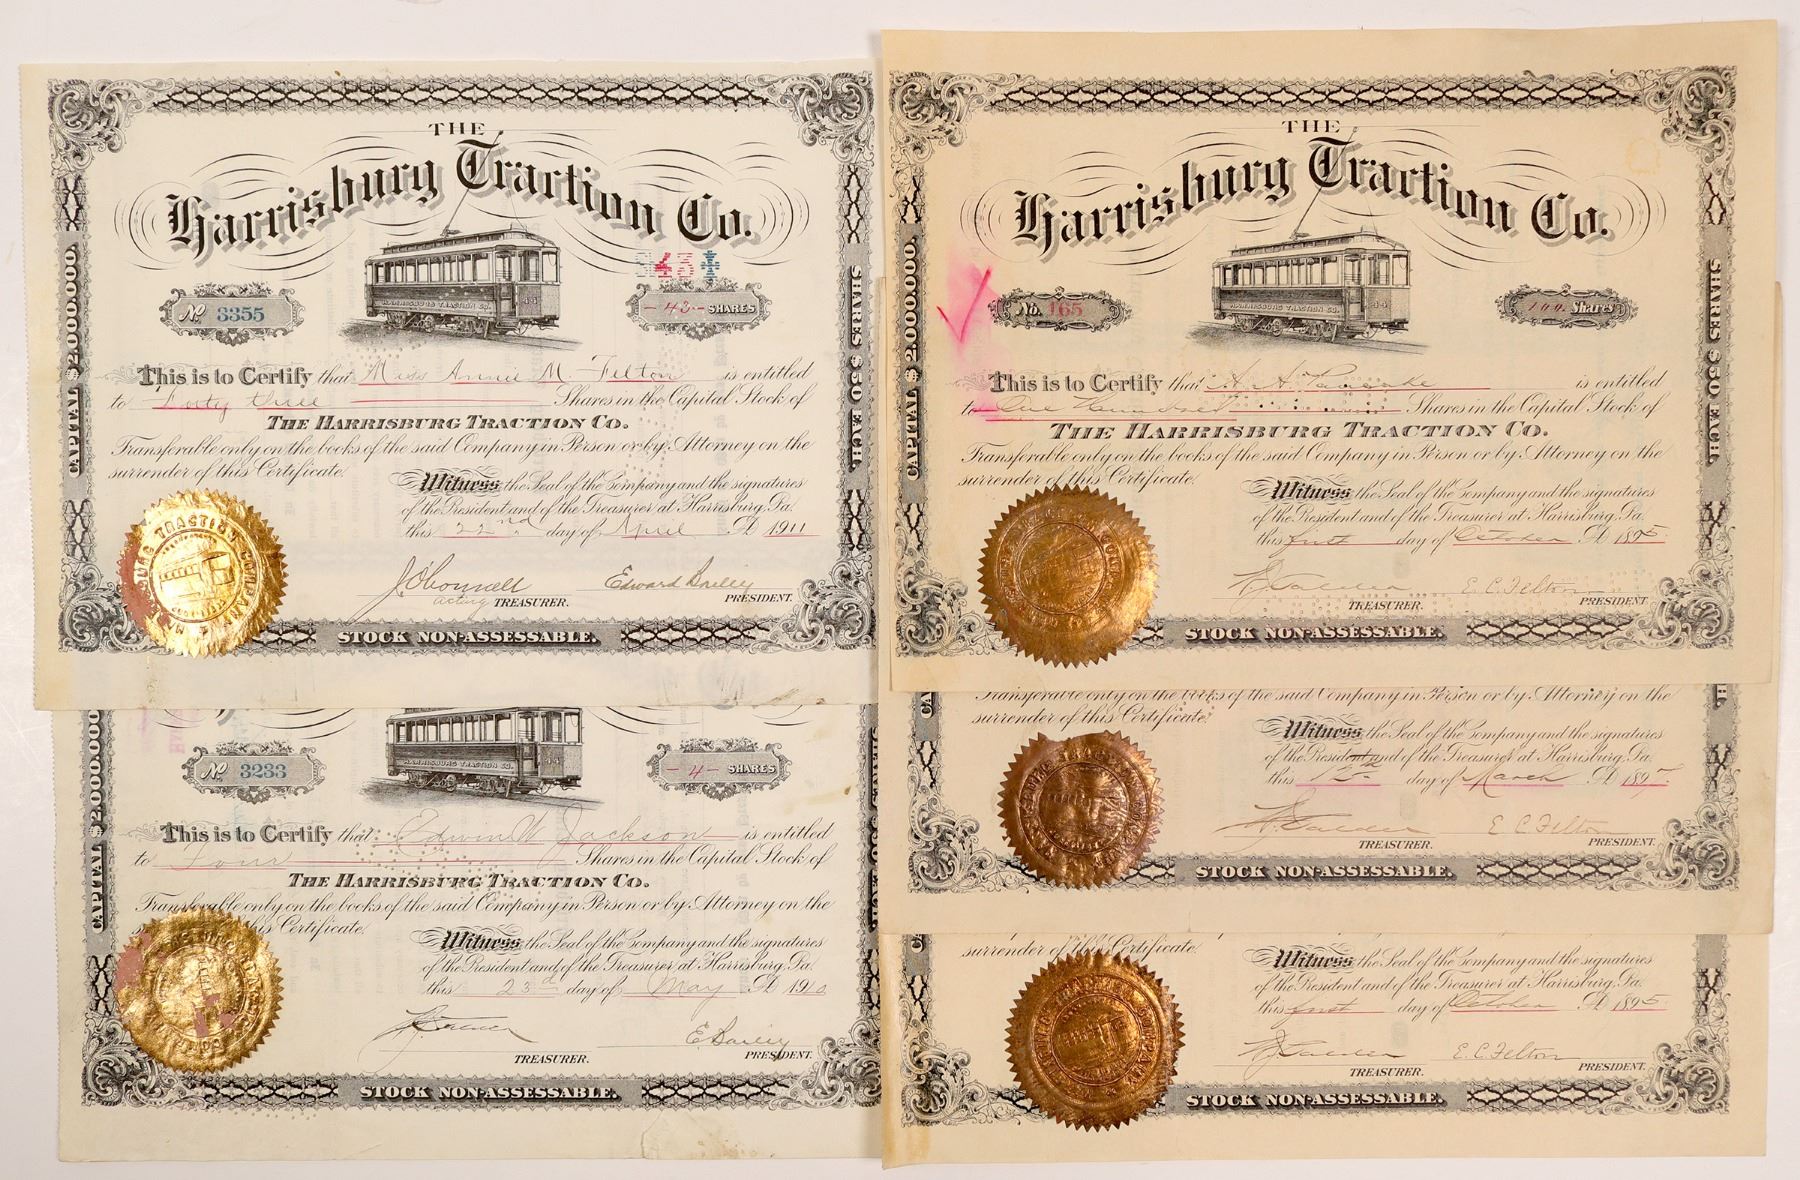 THE
Harrisburg Traction Co.
CAPITAL $2,000,000.
SHARES $50 EACH.
HARRISBURG TRACTION CO.
44
No 3355
43
-43- SHARES
This is to Certify that Miss Annie M Felton is entitled
to Forty three Shares in the Capital Stock of
THE HARRISBURG TRACTION CO.
Transferable only on the books of the said Company in Person or by Attorney on the
surrender of this Certificate.
Witness the Seal of the Company and the signatures
of the President and of the Treasurer at Harrisburg, Pa.
this 22nd day of April A.D. 1911
J O'Connell Edward Bailey
acting TREASURER. PRESIDENT.
STOCK NON-ASSESSABLE.
HARRISBURG TRACTION CO.
44
CAPITAL $2,000,000
No 3233
-4- SHARES
This is to Certify that Edwin W Jackson is entitled
to Four Shares in the Capital Stock of
THE HARRISBURG TRACTION CO.
Transferable only on the books of the said Company in Person or by Attorney on the
surrender of this Certificate.
Witness the Seal of the Company and the signatures
of the President and of the Treasurer at Harrisburg, Pa.
this 23d day of May A.D. 1910
E. Bailey
TREASURER. PRESIDENT.
STOCK NON-ASSESSABLE.
THE
Harrisburg Traction Co.
CAPITAL $2,000,000.
SHARES $50 EACH.
HARRISBURG TRACTION CO.
44
No. 165
100 Shares
This is to Certify that is entitled
to One Hundred Shares in the Capital Stock of
THE HARRISBURG TRACTION CO.
Transferable only on the books of the said Company in Person or by Attorney on the
surrender of this Certificate.
Witness the Seal of the Company and the signatures
of the President and of the Treasurer at Harrisburg, Pa.
this first day of October A.D. 1895
E. C. Felton
TREASURER. PRESIDENT.
STOCK NON-ASSESSABLE.
Transferable only on the books of the said Company in Person or by Attorney on the
surrender of this Certificate.
Witness the Seal of the Company and the signatures
of the President and of the Treasurer at Harrisburg, Pa.
this day of March A.D.
E C Felton
TREASURER. PRESIDENT.
STOCK NON-ASSESSABLE.
surrender of this Certificate.
Witness the Seal of the Company and the signatures
of the President and of the Treasurer at Harrisburg, Pa.
this first day of October A.D. 1895
E. C. Felton
TREASURER. PRESIDENT.
STOCK NON-ASSESSABLE.